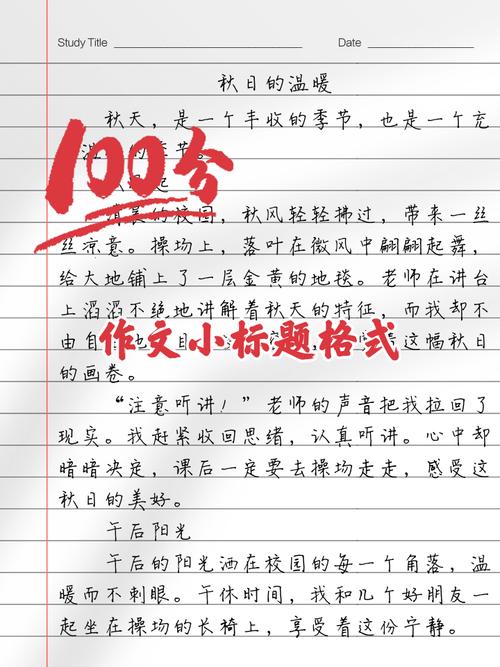 Study Title
Date
秋日的温暖
秋天，是一个丰收的季节，也是一个充
的季节。
100分
的校园，秋风轻轻拂过，带来一丝
丝凉意。操场上，落叶在微风中翩翩起舞，
给大地铺上了一层金黄的地毯。老师在讲台
上滔滔不绝地讲解着秋天的特征，而我却不
由自
作文小标题格式
这幅秋日
的画卷。
“注意听讲！”老师的声音把我拉回了
现实。我赶紧收回思绪，认真听讲。心中却
暗暗决定，课后一定要去操场走走，感受这
秋日的美好。
午后阳光
午后的阳光洒在校园的每一个角落，温
暖而不刺眼。午休时间，我和几个好朋友一
起坐在操场的长椅上，享受着这份宁静。